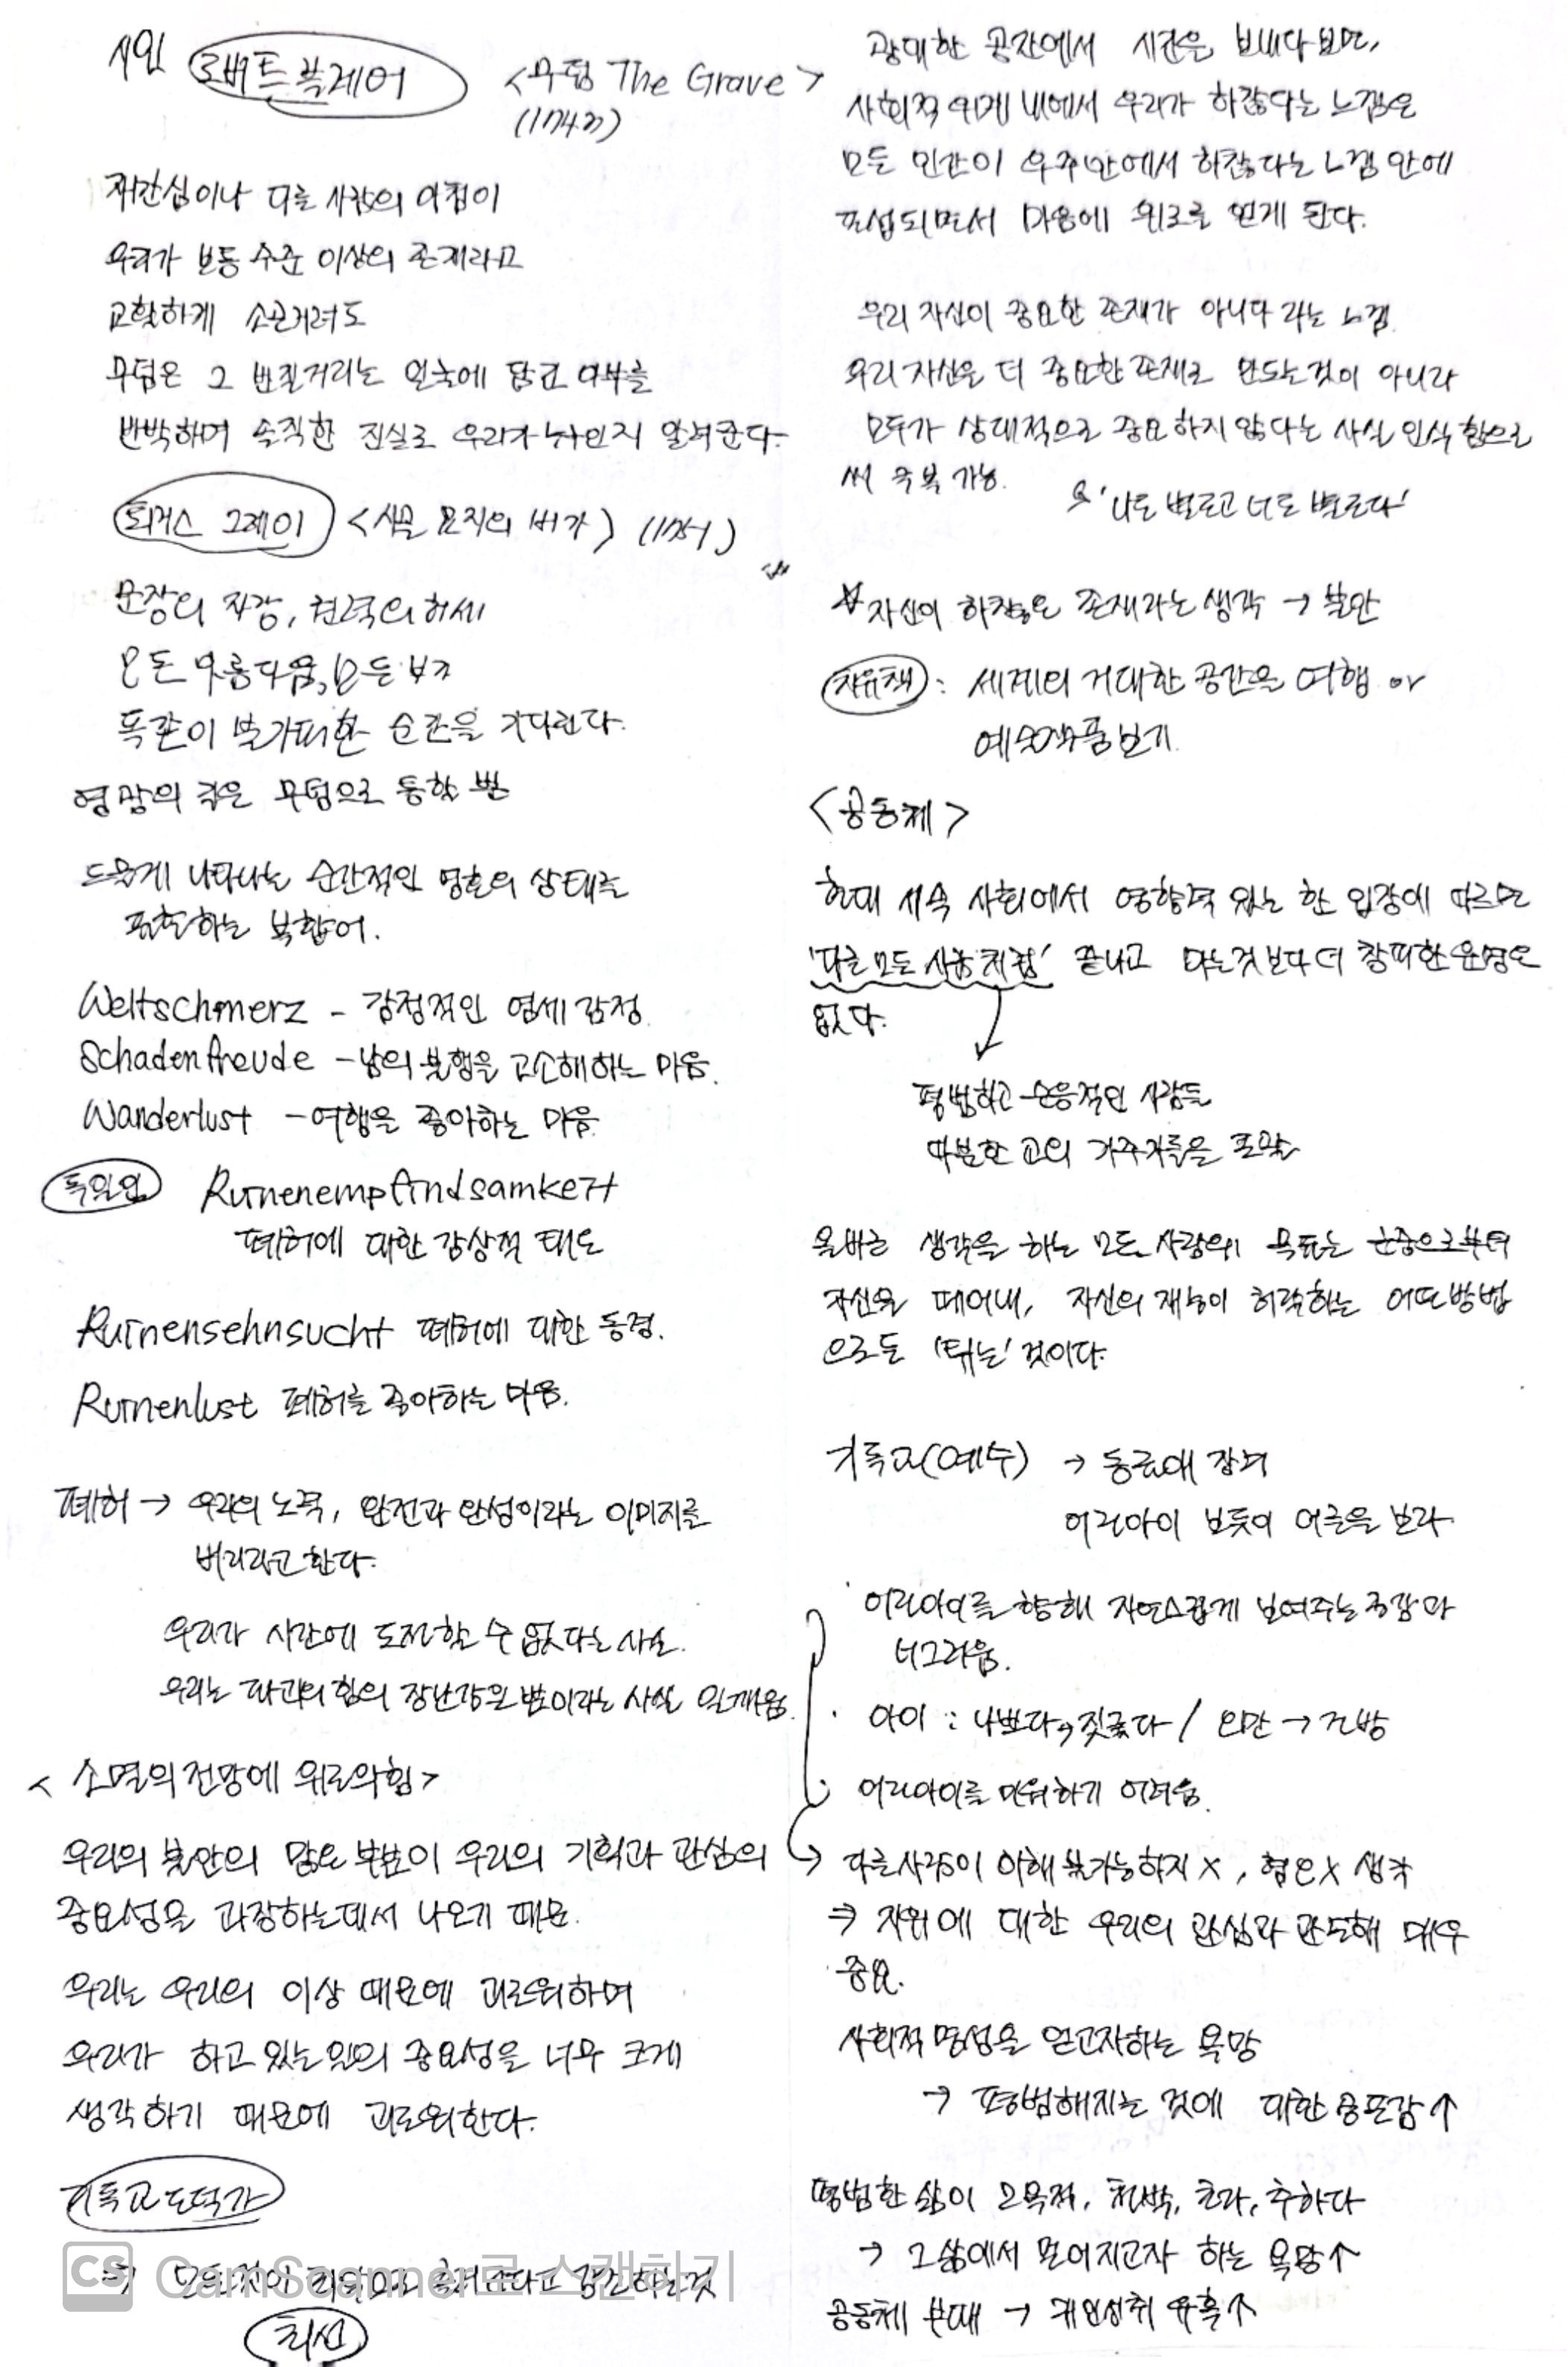 시인 로버트 블레어 <무덤 The Grave>
(1743)
자만심이나 다른 사람의 아첨이
우리가 보통 수준 이상의 존재라고
교활하게 소곤거려도
무덤은 그 번질거리는 얼굴에 담긴 아부를
반박하며 솔직한 진실로 우리가 누구인지 알려준다.
토머스 그레이 <시골 묘지의 비가> (1751)
문장의 자랑, 권력의 허세
모든 아름다움, 모든 부가
똑같이 불가피한 순간을 기다린다.
영광의 길은 무덤으로 통할 뿐
드물게 나타나는 순간적인 영혼의 상태를
표현하는 복합어.
Weltschmerz - 감정적인 염세 감정
Schadenfreude - 남의 불행을 고소해하는 마음.
Wanderlust - 여행을 좋아하는 마음.
독일인 Ruinenempfindsamkeit
폐허에 대한 감상적 태도
Ruinensehnsucht 폐허에 대한 동경.
Ruinenlust 폐허를 좋아하는 마음.
폐허 → 우리의 노력, 완전과 완성이라는 이미지를
버리라고 한다.
우리가 시간에 도전할 수 없다는 사실.
우리는 파괴의 힘의 장난감일 뿐이라는 사실 일깨움.
< 소멸의 전망에 위로의 힘 >
우리의 불안의 많은 부분이 우리의 기획과 관심의
중요성을 과장하는데서 나오기 때문.
우리는 우리의 이상 때문에 괴로워하며
우리가 하고 있는 일의 중요성을 너무 크게
생각하기 때문에 괴로워한다.
기독교 도덕가
→ 모든 것이 최악으로 흘러간다고 강조하는 것
최선
CS CamScanner로 스캔하기
광대한 공간에서 시간을 보내다 보면,
사회적 위계 내에서 우리가 하찮다는 느낌은
모든 인간이 우주 안에서 하찮다는 느낌 안에
포섭되면서 마음에 위로를 얻게 된다.
우리 자신이 중요한 존재가 아니다 라는 느낌
우리 자신을 더 중요한 존재로 만드는 것이 아니라
모두가 상대적으로 중요하지 않다는 사실 인식함으로
써 극복 가능.
'나도 별로고 너도 별로다'
자신이 하찮은 존재라는 생각 → 불안
치유책 : 세계의 거대한 공간을 여행 or
예술작품 보기.
<공동체>
현대 세속 사회에서 영향력 있는 한 입장에 따르면
'다른 모든 사람처럼' 끝나고 마는 것보다 더 창피한 운명은
없다.
평범하고 순응적인 사람들
따분한 교외 거주자들을 포함
올바른 생각을 하는 모든 사람의 목표는 군중으로부터
자신을 떼어내, 자신의 재능이 허락하는 어떤 방법
으로든 '튀는' 것이다.
기독교(예수) → 동료애 장려
어린아이 보듯이 어른을 보라.
· 어린아이를 향해 자연스럽게 보여주는 공감과
너그러움.
· 아이 : 나쁘다→짓궂다 / 오만 → 건방
· 어린아이를 미워하기 어려움.
→ 다른 사람이 이해 불가능하지 X, 혐오 X 생각
⇒ 지위에 대한 우리의 관심과 관도해 매우
중요.
사회적 명성을 얻고자하는 욕망
→ 평범해지는 것에 대한 공포감 ↑
평범한 삶이 모욕적, 천박, 초라, 추하다
→ 그 삶에서 멀어지고자 하는 욕망 ↑
공동체 부패 → 개인성취 유혹 ↑